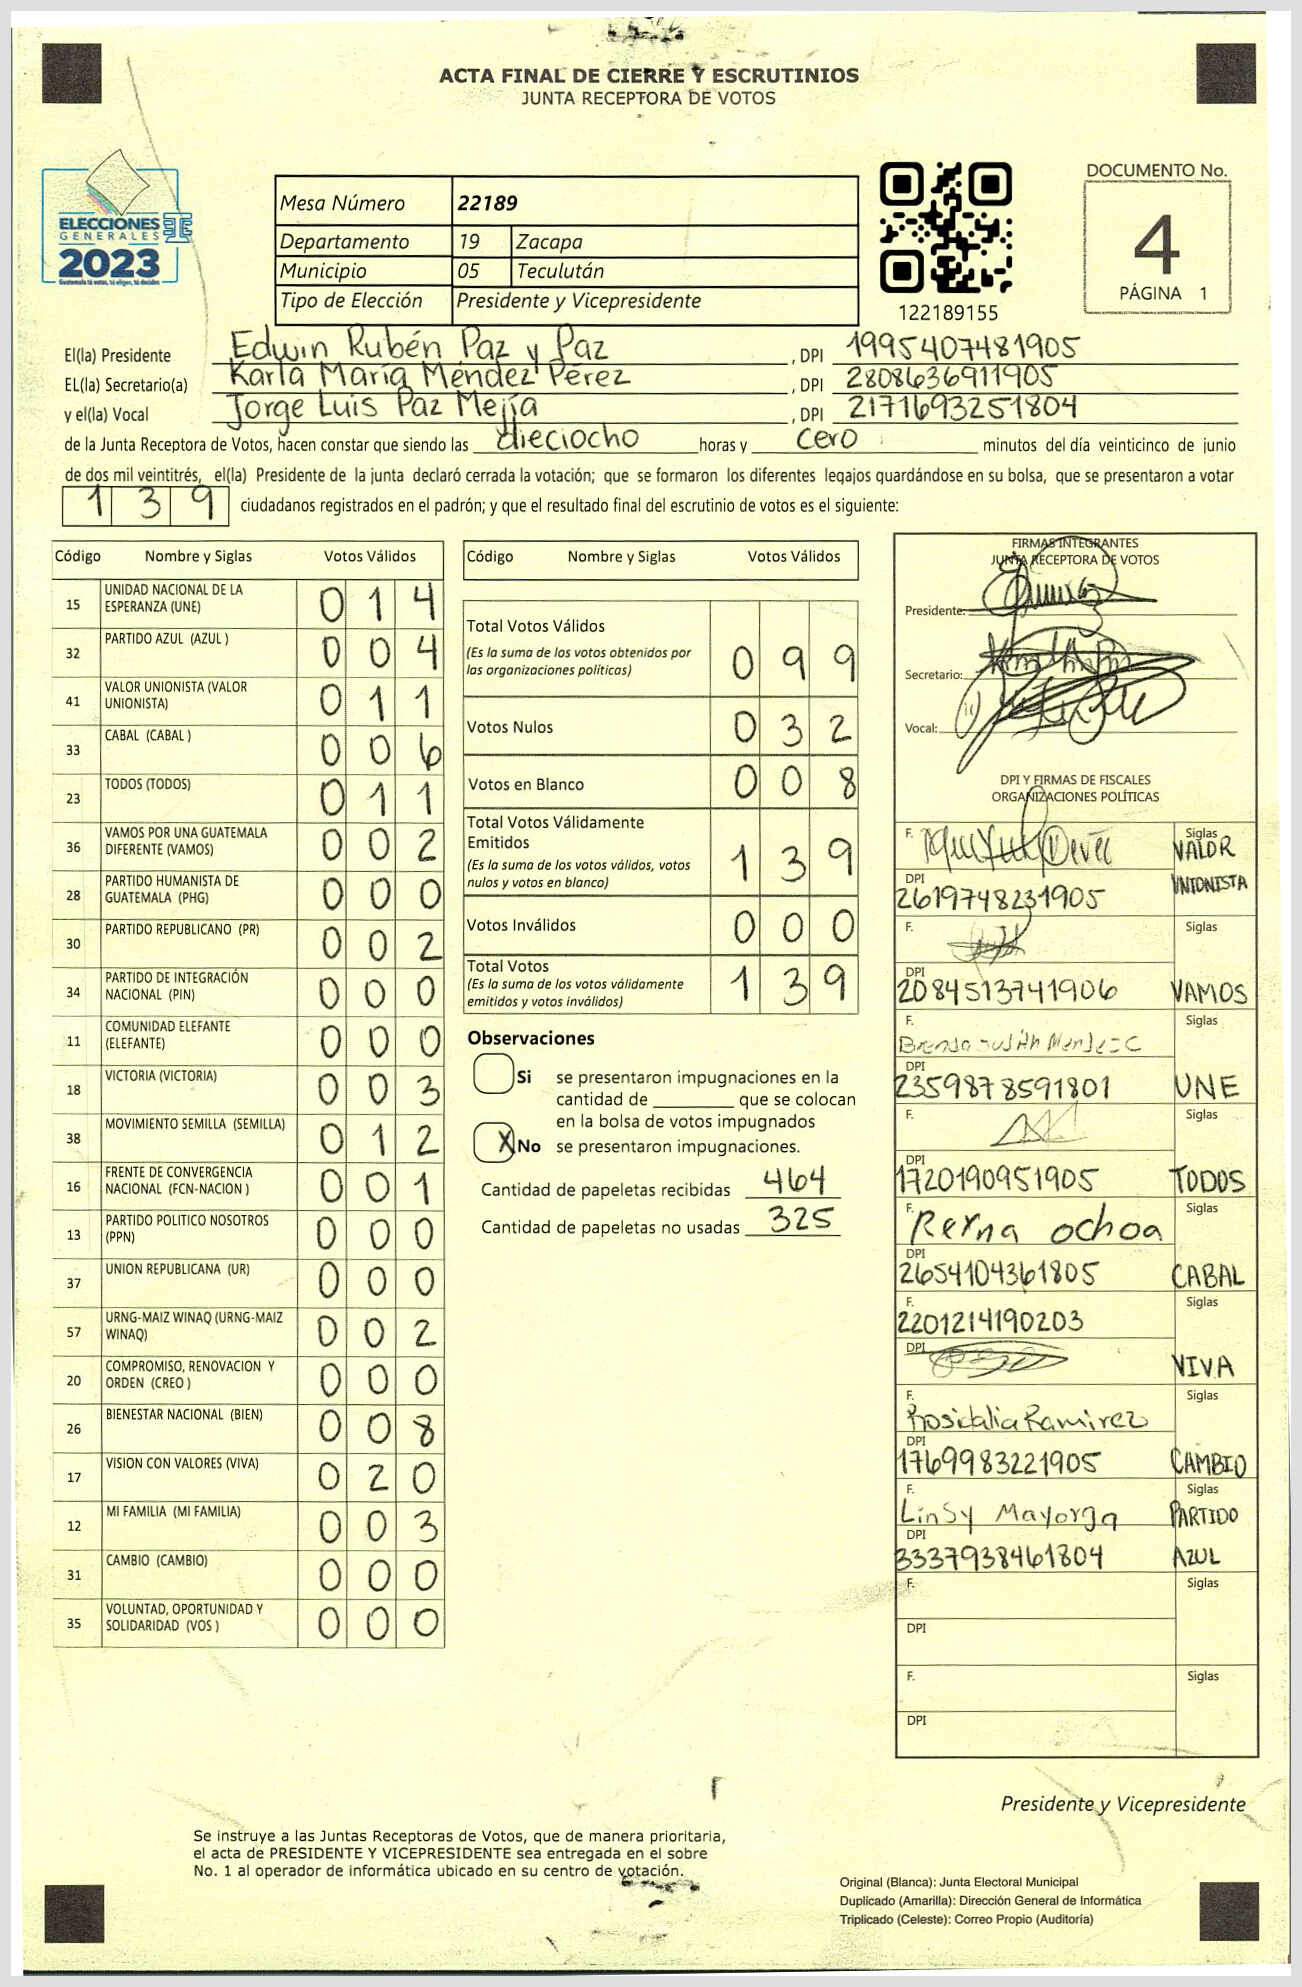 ACTA FINAL DE CIERRE Y ESCRUTINIOS
JUNTA RECEPTORA DE VOTOS
ELECCIONES
GENERALES
2023
Guatemala tú votas, tú eliges, tú decides
Mesa Número 22189
Departamento 19 Zacapa
Municipio 05 Teculután
Tipo de Elección Presidente y Vicepresidente
122189155
DOCUMENTO No.
4
PÁGINA 1
El(la) Presidente Edwin Rubén Paz y Paz , DPI 1995407481905
EL(la) Secretario(a) Karla María Méndez Pérez , DPI 2808636911905
y el(la) Vocal Jorge Luis Paz Mejía , DPI 2171693251804
de la Junta Receptora de Votos, hacen constar que siendo las dieciocho horas y cero minutos del día veinticinco de junio
de dos mil veintitrés, el(la) Presidente de la junta declaró cerrada la votación; que se formaron los diferentes legajos guardándose en su bolsa, que se presentaron a votar
139 ciudadanos registrados en el padrón; y que el resultado final del escrutinio de votos es el siguiente:
Código Nombre y Siglas Votos Válidos
15 UNIDAD NACIONAL DE LA ESPERANZA (UNE) 014
32 PARTIDO AZUL (AZUL ) 004
41 VALOR UNIONISTA (VALOR UNIONISTA) 011
33 CABAL (CABAL ) 006
23 TODOS (TODOS) 011
36 VAMOS POR UNA GUATEMALA DIFERENTE (VAMOS) 002
28 PARTIDO HUMANISTA DE GUATEMALA (PHG) 000
30 PARTIDO REPUBLICANO (PR) 002
34 PARTIDO DE INTEGRACIÓN NACIONAL (PIN) 000
11 COMUNIDAD ELEFANTE (ELEFANTE) 000
18 VICTORIA (VICTORIA) 003
38 MOVIMIENTO SEMILLA (SEMILLA) 012
16 FRENTE DE CONVERGENCIA NACIONAL (FCN-NACION ) 001
13 PARTIDO POLITICO NOSOTROS (PPN) 000
37 UNION REPUBLICANA (UR) 000
57 URNG-MAIZ WINAQ (URNG-MAIZ WINAQ) 002
20 COMPROMISO, RENOVACION Y ORDEN (CREO ) 000
26 BIENESTAR NACIONAL (BIEN) 008
17 VISION CON VALORES (VIVA) 020
12 MI FAMILIA (MI FAMILIA) 003
31 CAMBIO (CAMBIO) 000
35 VOLUNTAD, OPORTUNIDAD Y SOLIDARIDAD (VOS ) 000
Código Nombre y Siglas Votos Válidos
Total Votos Válidos 099
(Es la suma de los votos obtenidos por
las organizaciones políticas)
Votos Nulos 032
Votos en Blanco 008
Total Votos Válidamente
Emitidos 139
(Es la suma de los votos válidos, votos
nulos y votos en blanco)
Votos Inválidos 000
Total Votos 139
(Es la suma de los votos válidamente
emitidos y votos inválidos)
Observaciones
Si se presentaron impugnaciones en la
cantidad de ________ que se colocan
en la bolsa de votos impugnados
X No se presentaron impugnaciones.
Cantidad de papeletas recibidas 464
Cantidad de papeletas no usadas 325
FIRMAS INTEGRANTES
JUNTA RECEPTORA DE VOTOS
Presidente:
Secretario:
Vocal:
DPI Y FIRMAS DE FISCALES
ORGANIZACIONES POLÍTICAS
F. Siglas VALOR
DPI 2619748231905 UNIONISTA
F. Siglas
DPI 2084513741906 VAMOS
F. Brenda Judith Mendez C Siglas
DPI 2359878591801 UNE
F. Siglas
DPI 1720190951905 TODOS
F. Reyna ochoa Siglas
DPI 2654104361805 CABAL
F. 2201214190203 Siglas
DPI VIVA
F. Rosidalia Ramirez Siglas
DPI 1769983221905 CAMBIO
F. Linsy Mayorga Siglas PARTIDO
DPI 3337938461804 AZUL
F. Siglas
DPI
F. Siglas
DPI
Presidente y Vicepresidente
Se instruye a las Juntas Receptoras de Votos, que de manera prioritaria,
el acta de PRESIDENTE Y VICEPRESIDENTE sea entregada en el sobre
No. 1 al operador de informática ubicado en su centro de votación.
Original (Blanca): Junta Electoral Municipal
Duplicado (Amarilla): Dirección General de Informática
Triplicado (Celeste): Correo Propio (Auditoría)